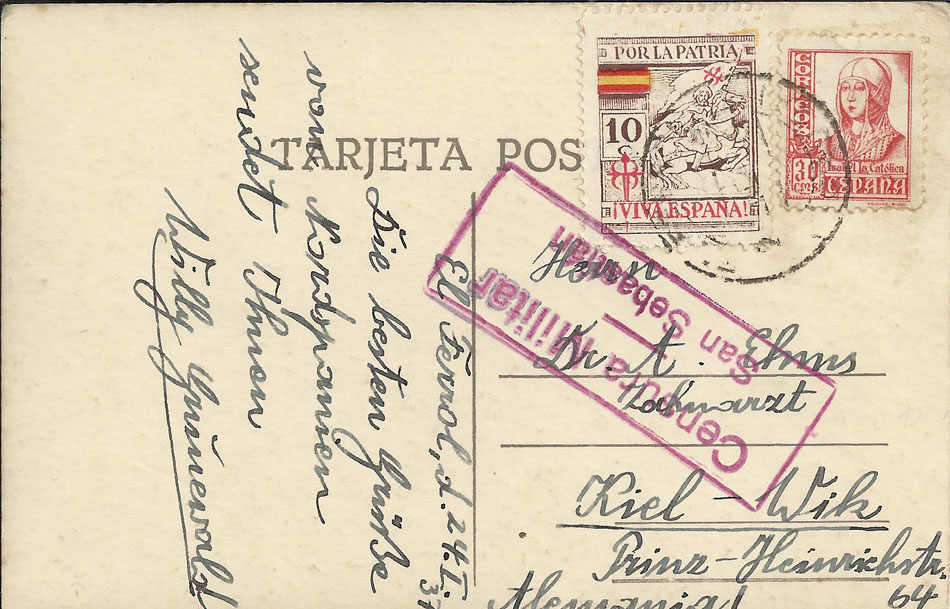 TARJETA POS
El Ferrol, d. 24.I.
37
Die besten Grüße
vom Nordspanien
sendet Ihnen
Willy Grünewald
POR LA PATRIA
10
¡VIVA ESPAÑA!
CORREOS
30
CMS
Isabel la Católica
ESPAÑA
Censura Militar
San Sebastián
Herrn
Dr. A. Ehms
Zahnarzt
Kiel-Wik
Prinz-Heinrichstr.
64
Alemania!